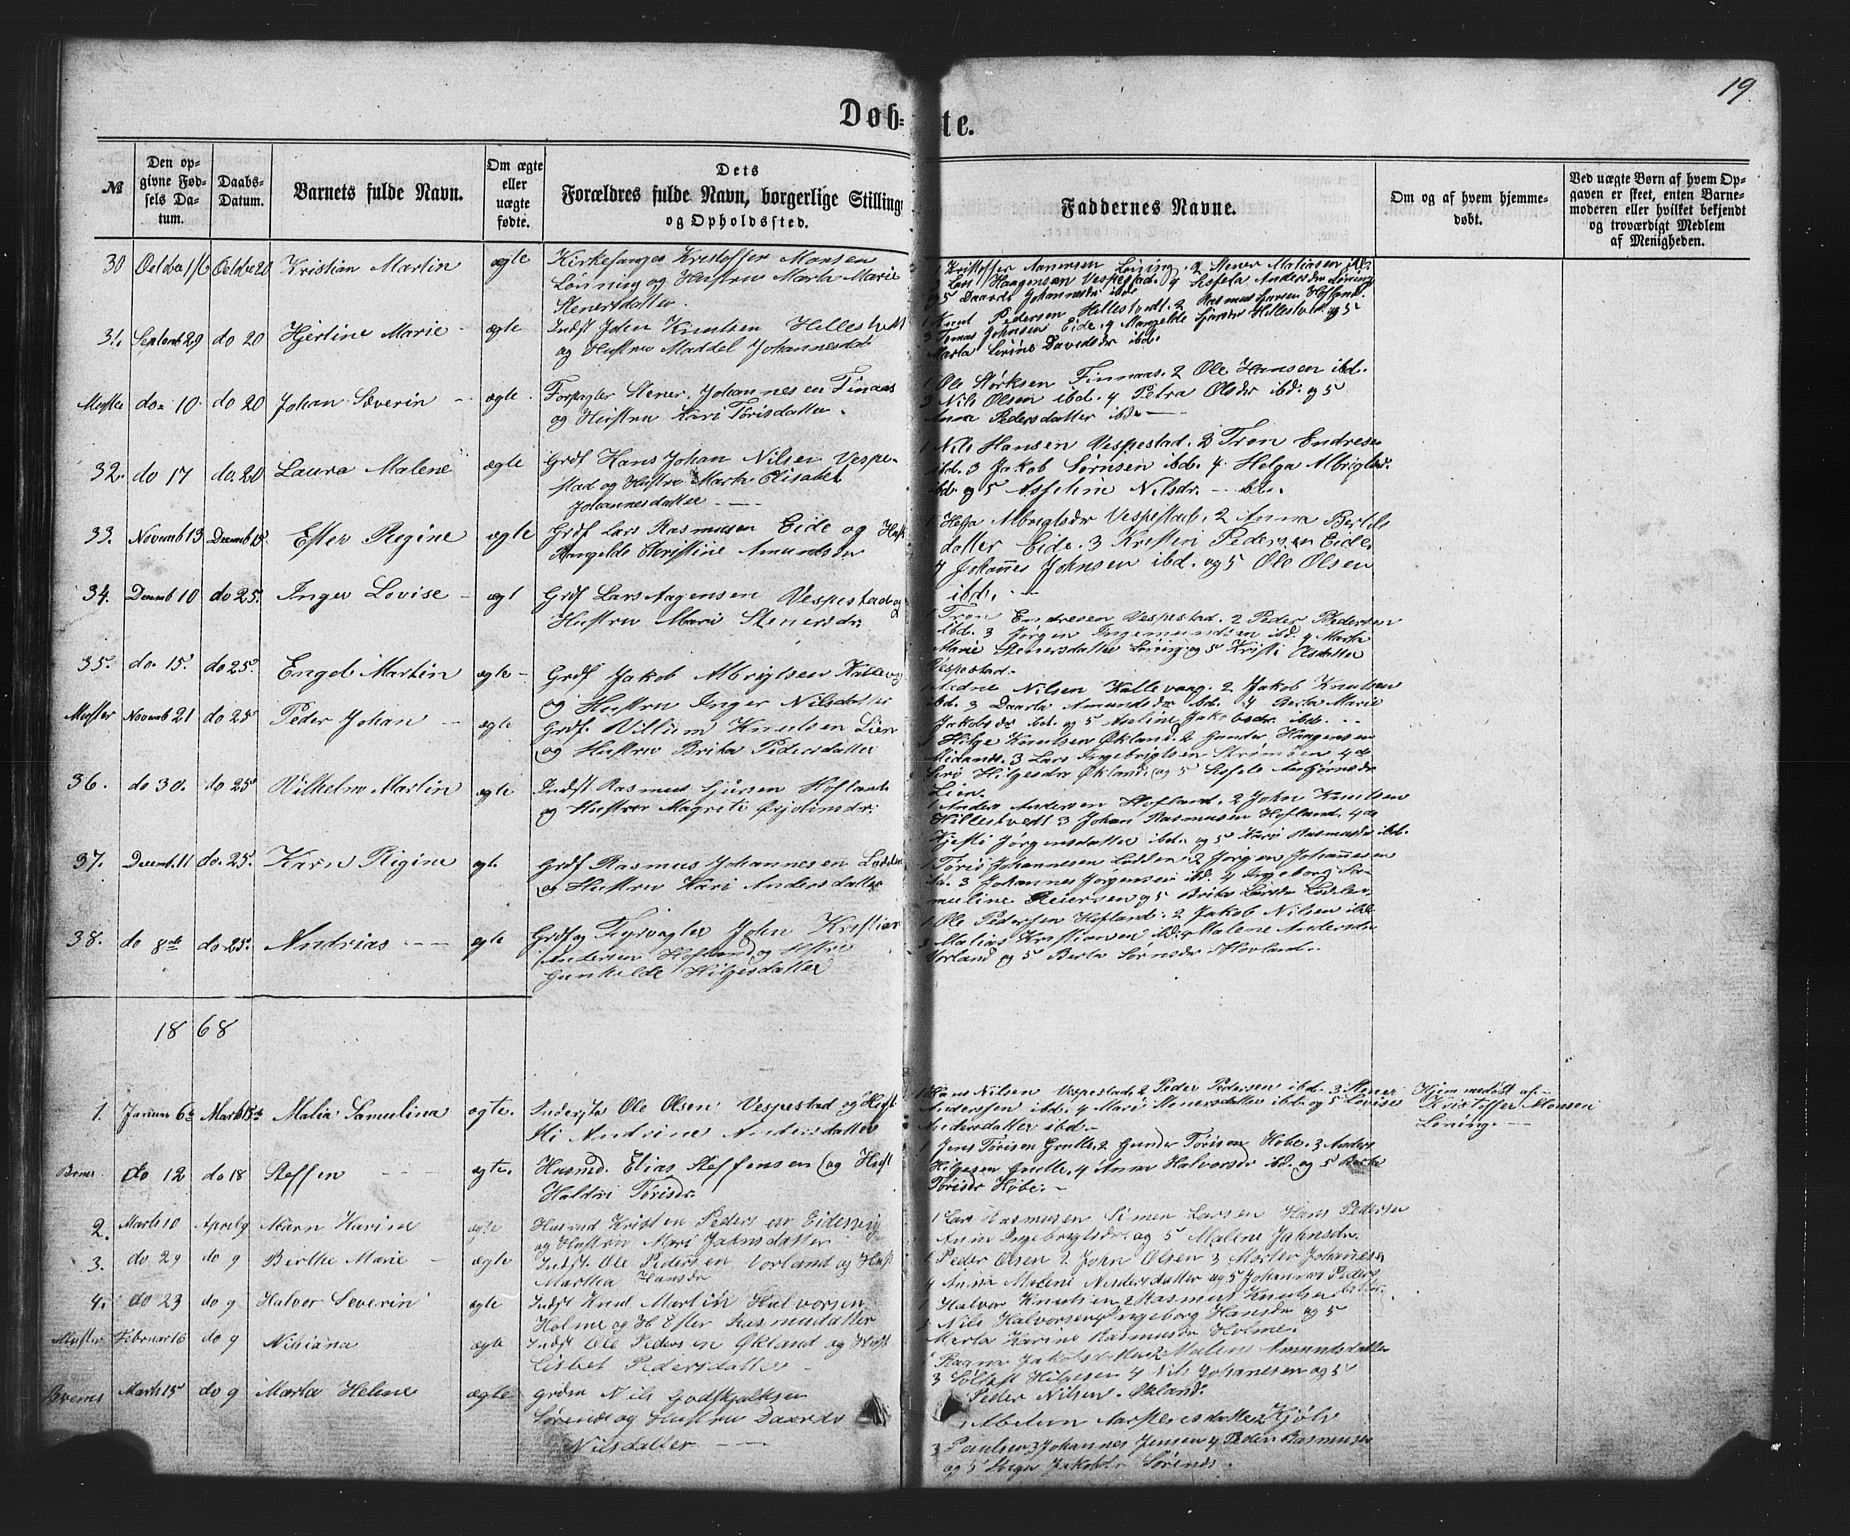 19.
Døb-
te.
№
Den op-
givne Fød-
sels Da-
tum.
Daabs-
Datum.
Barnets fulde Navn.
Om ægte
eller
uægte
fødte.
Dets
Forældres fulde Navn, borgerlige Stilling
og Opholdssted.
Faddernes Navne.
Om og af hvem hjemme-
døbt.
Ved uægte Børn af hvem Op-
gaven er skeet, enten Barne-
moderen eller hvilket bekjendt
og troværdigt Medlem
af Menigheden.
30 Octbr 16 Octbr 20 Kristian Martin ægte Kirkesanger Kristoffer Monsen
Løning og Hustru Marta Marie
Stenersdatter.
1 Kristoffer Løning. 2 Stener Matiasen ibd.
3 Lars Haagensen Vespestad. 4 Andersdr Løning
og 5 Daarde Johannesdr ibd.
31. Septemb 29 do 20 Hjertine Marie - ægte Indst John Knutsen Hellestvedt
og Hustru Maddel Johannesdr
1 Knut Pedersen Hellestvedt. 2 Rasmus Larsen Hofland.
3 Johnsen Eide. 4 Mangelde Hellestvedt og 5
Marta Sørine Davidsdr ibd.
Moster do 10 do 20 Johan Severin - ægte Forpagter Stener Johannesen Finaas
og Hustru Kari Tørisdatter.
1 Ole Størksen Finnaas. 2 Ole Hansen ibd.
3 Nils Olsen ibd. 4 Petra Olsdr ibd. og 5
Anna Pedersdatter ibd -
32. do 17 do. 20 Laura Malene ægte Grdf Hans Johan Nilsen Vespe-
stad og Hustru Marta Elisabet
Johannesdatter -
1 Nils Hansen Vespestad. 2 Tron Endresen
ibd. 3 Jakob Sørnsen ibd. 4. Helga Albrigtsdr.
ibd. og 5 Asseline Nilsdr. - ibd.
33. Novemb 13 Decemb 15. Ester Regine ægte Grdf Lars Rasmusen Eide og Hust
Mangelde Kristine Amundsdr
1 Helga Albrigtsdr Vespestad. 2 Anna Bertels
datter Eide. 3 Kristen Pedersen Eide.
4 Johannes Johnsen ibd. og 5 Ole Olsen
ibd. -
34. Decemb 10 do 25. Inger Lovise - ægt Grdf Lars Aagensen Vespestad og
Hustru Mari Stenersdr
1 Tron Endresen Vespestad. 2 Peder Pedersen
ibd. 3 Jørgen Ingemundsen ibd. 4 Marta
Marie Stenersdatter Løning og 5 Kristi Olsdatter
Vespestad.
35. do 15. do 25. Engel Martin ægte - Grdf Jakob Albrigtsen Kallevag
og Hustru Inger Nilsdatter
1 Nilsen Kallevaag. 2 Jakob Knutsen
ibd. 3 Daarta Amundsdr ibd. 4 Berta Marie
Jakobsdr ibd. og 5 Aseline Jakobsdr ibd. -
Moster Novemb 21 do 25 Peder Johan - ægte Grdf. Villum Knutsen Lien
og Hustru Brita Pedersdatter
1 Hilge Knutsen Økland. 2 Gunder Haagensen
3 Lars Ingebrigtsen Strømøen, 4
Siri Hilgesdr Økland og 5
Lien.
36. do 30. do 25 Vilhelm Martin ægte Indst Rasmus Sjursen Hofland
og Hustru Magrete
1 Anders Andersen Hofland. 2 John Knutsen
Hillestvedt. 3 Johan Rasmusen Hofland. 4
Kjersti Jørgensdatter ibd. og 5 Kari Rasmusdr ibd.
37. Decemb. 11 do. 25. Karn Rigine ægte Grdf Rasmus Johannesen Lodden
og Hustru Kari Andersdatter
1 Tøris Johannesen Lodden. 2 Jørgen Johannesen
ibd. 3 Johannes Jørgensen ibd. 4 Ingeborg Sa-
muline Reiersen og 5 Brita Larsdr Lodden.
38. do 8de do 25. Andrias - - ægte Grdf og Fyrvagter John Kristian
Andersen Hofland og Hustru
Gunhilde Hilgesdatter
1 Ole Pedersen Hofland. 2 Jakob Nilsen ibd
3 Matias Kristiansen ibd. 4 Malene Andersdr
Vorland og 5 Berta Sørnsdr Hovland. -
1868
1. Januar 6 Marts 15 Malia Samulina ægte. Inderste Ole Olsen Vespestad og Hust
Andrine Andersdatter
1 Hans Nilsen Vespestad. 2 Peder Pedersen ibd. 3 Stener
Anderssen ibd. 4 Mari Stenersdatter ibd. og 5 Lovise
Andersdatter ibd -
Hjemmedøbt af -
Kristoffer Monsen
Løning. -
Bremn. do 12 do 18 Steffen - - ægte. Husmd. Elias Steffensen og Hust
Haldri Tørisdr
1 Jens Tørisen Grulle. 2 Gunder Tørisen Høbe. 3 Anders
Hilgesen Grulle. 4 Anna Halvorsdr ibd. og 5 Berta
Tørisdr Høbe. -
2. Marts 10 April 9 Marn Karine ægte Husmd Kristen Pedersen Eidesvig
og Hustru Mari Jahnsdatter
1 Lars Rasmusen Simen Larsen Hans Pedersen
Anna Ingebrigtsdr og 5 Malene Jahnsdr.
3. do 29 do 9 Berthe Marie - ægte Indst. Ole Pedersen Vorland og Hust
Martha Hansdr
1 Peder Olsen 2 John Olsen 3 Morter Johannesen
4 Anna Malene Andersdatter og 5 Johannes Peders
4. do 23 do 9 Halvor Severin ægte Indst Knut Martin Halvorsen
Holme og H. Ester Rasmusdatter
1 Halvor Knutsen 2 Rasmus Knutsen
3 Nils Halvorsen 4 Ingeborg Hansdr og 5
Marta Karine Rasmusdr Holme.
Moster Februar 16 do 9 Nisiana ægte Indst Ole Pedersen Økland og Hust
Lisbet Pedersdatter -
1 Ragna Jakobsdatter 2 Malene Amundsdatter
3 Hilgesen 4 Nils Johanesen og 5
Peder Nilsen. Økland.
Bremn Marts 15 do 9 Marta Helene ægte Grdm Nils Godskjalksen
Sørenes og Hustru Daarde
Nilsdatter -
1 Abelun datter 2 Kjøl
Paulsen 3 Johannes Jensen 4 Peder Rasmusen
og 5 Inger Jakobsdr Sørenes.